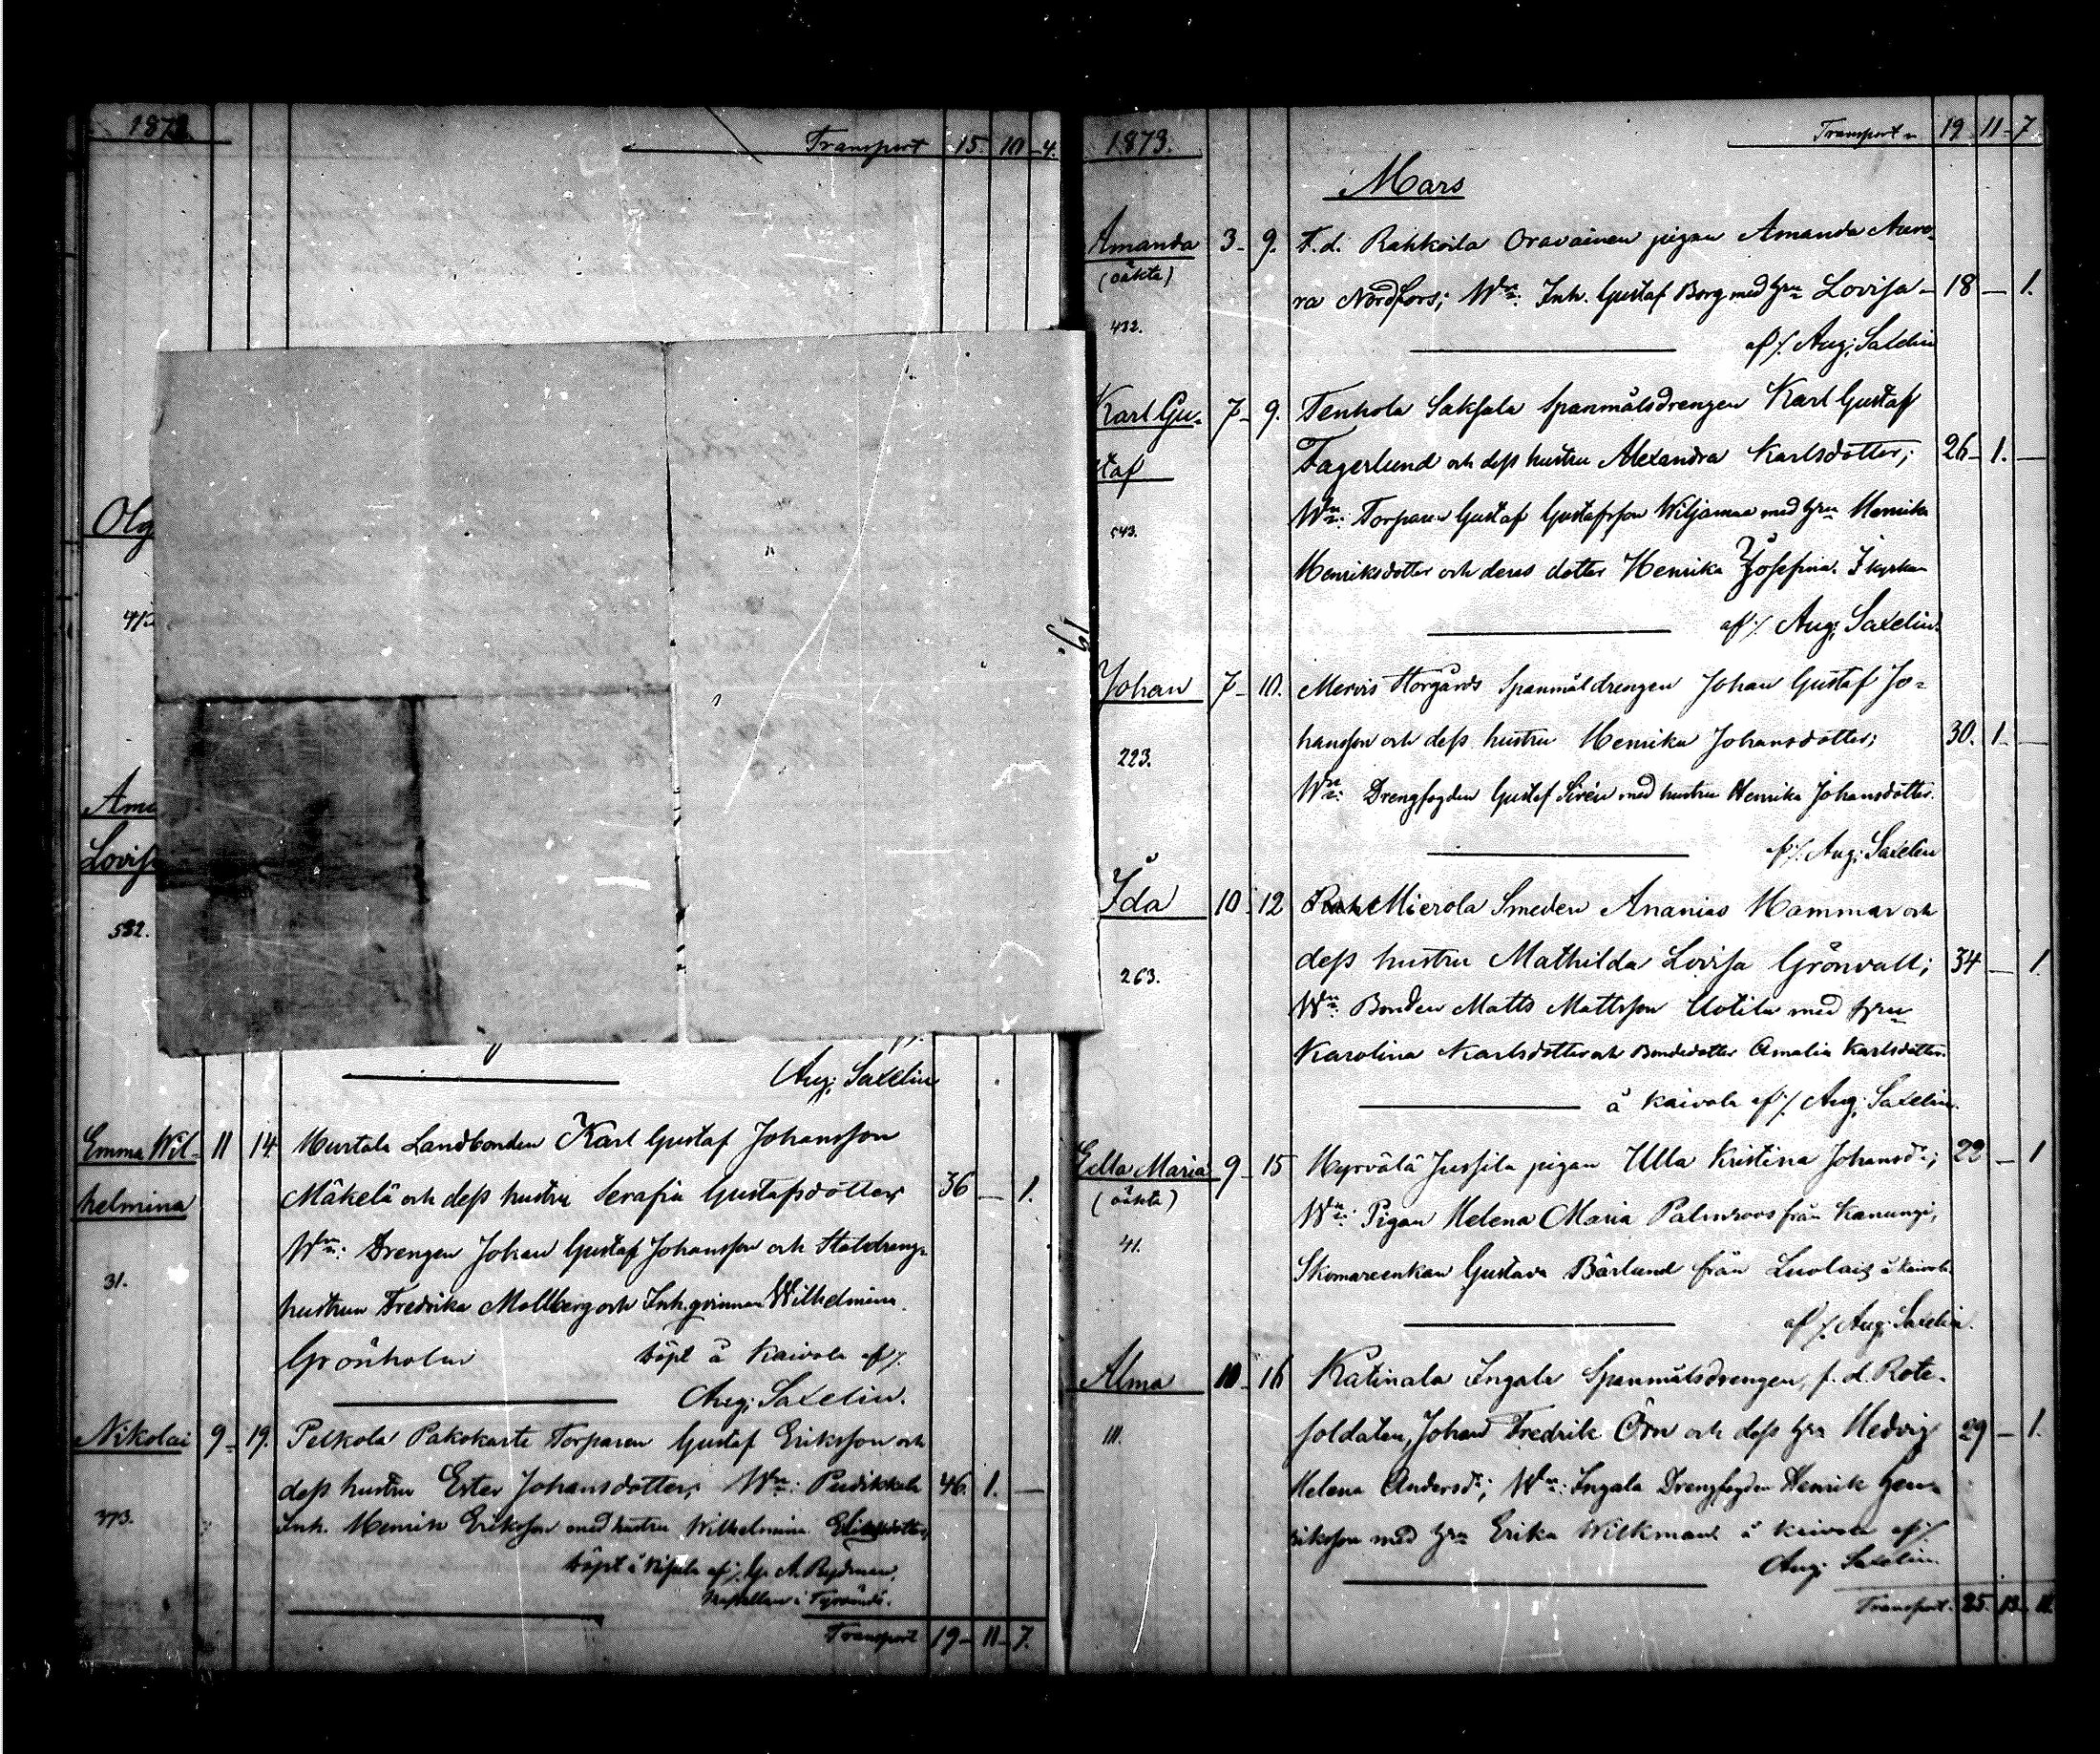 1873.
Transport 15. 10 - 4.
Olg
Ama
Lovisa
532.
19.
Aug. Saxelin
Emma Wil- 11 14 Murtala Landbonden Karl Gustaf Johansson
helmina Mäkelä och dess hustru Serafia Gustafsdotter; 36 — 1.
Wn: Drengen Johan Gustaf Johansson och Staldrengs-
31. hustrun Fredrika Mollberg och Inh.qvinnan Wilhelmina
Grönholm döpt å Kaivola af /.
Aug. Saxelin.
Nikolai 9 - 19. Pelkola Pakokarte Torparen Gustaf Eriksson och
dess hustru Ester Johansdotter; Wn: 46. 1. —
373. Inh. Henrik Eriksson med hustru Wilhelmina
döpt i af /. G. A. Rydman,
Kapellan i Tyrvändö.
Transport 19 - 11 - 7.
1873. Transport 19 - 11 - 7.
Mars
Amanda 3 - 9. F.d. Rahkoila Oravainen pigan Amanda Auro-
(oäkta) ra Nordfors; Wn: Inh. Gustaf Borg med hru Lovisa - 18 — 1.
432. af /. Aug. Saxelin
Karl Gu- 7 - 9. Tenhola Saksala Spanmålsdrengen Karl Gustaf
staf Fagerlund och dess hustru Alexandra Karlsdotter; 26 - 1. —
543. Wn: Torparen Gustaf Gustafsson Wiljamaa med hru Henrika
Henriksdotter och deras dotter Henrika Josefina. I kyrkan
af /. Aug. Saxelin.
Johan 7 - 10. Mervis Storgårds Spanmåldrengen Johan Gustaf Jo-
223. hansson och dess hustru Henrika Johansdotter; 30. 1. —
Wn: Drengfogden Gustaf Sirén med hustru Henrika Johansdotter.
af /. Aug. Saxelin
Ida 10 - 12 Mierola Smeden Ananias Hammar och
263. dess hustru Mathilda Lovisa Grönvall; 34 — 1.
Wn: Bonden Matts Mattsson Uotila med hru
Karolina Karlsdotter och Bondedotter Amalia Karlsdotter.
å Kaivola af /. Aug. Saxelin.
Edla Maria 9 - 15 Hyrvälä Jussila pigan Ulla Kristina Johansdr; 22 — 1
(oäkta) Wn: Pigan Helena Maria Palmroos från Kanungi,
41. Skomareenkan Gustava Bärlund från Luolais å Kaivola
af /. Aug. Saxelin.
Alma 10 - 16 Kätinala Ingala Spanmålsdrengen, f.d. Rote-
111. soldaten, Johan Fredrik Örn och dess hru Hedvig 29 — 1.
Helena Andersdr; Wn: Ingala Drengfogden Henrik Hen-
riksson med hru Erika Wilkman å Kaivola af /.
Aug. Saxelin.
Transport. 25. 13. 11.